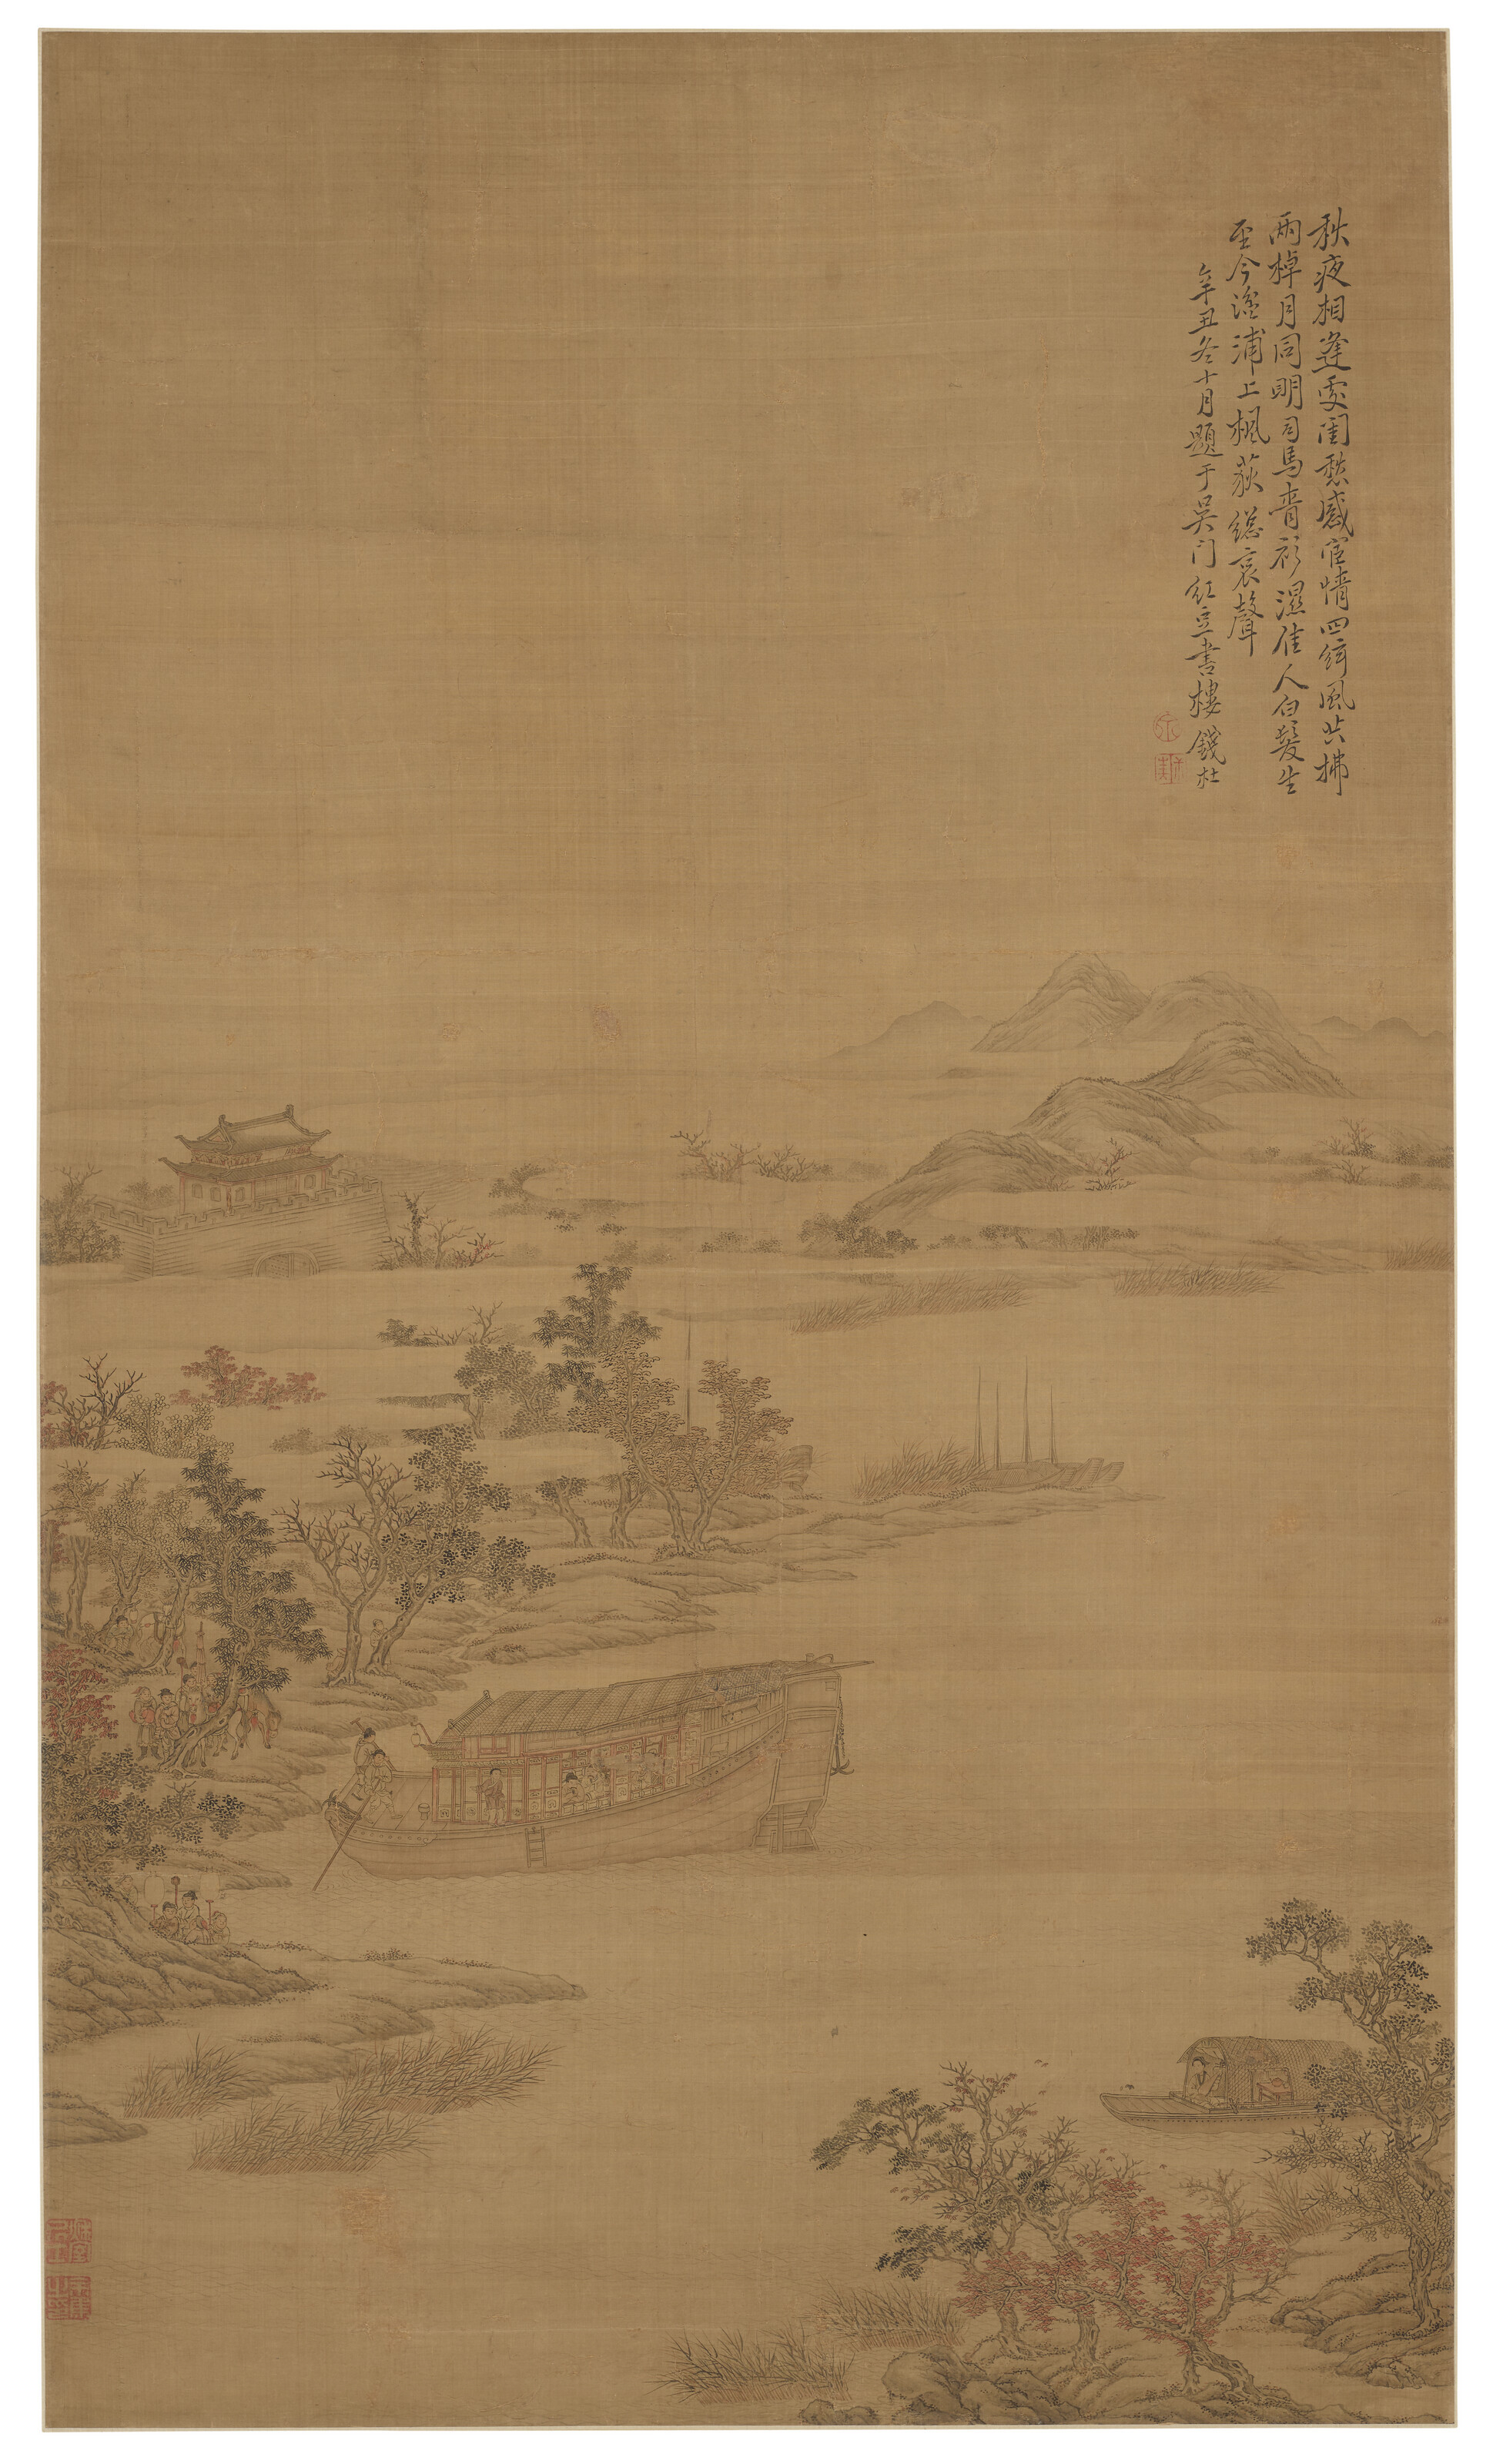 秋夜相逢處閨愁感宦情四絃風共拂
兩棹月同明司馬青衫濕佳人白髮生
至今湓浦上楓荻總哀聲
辛丑冬十月題于吳門紅豆書樓錢杜